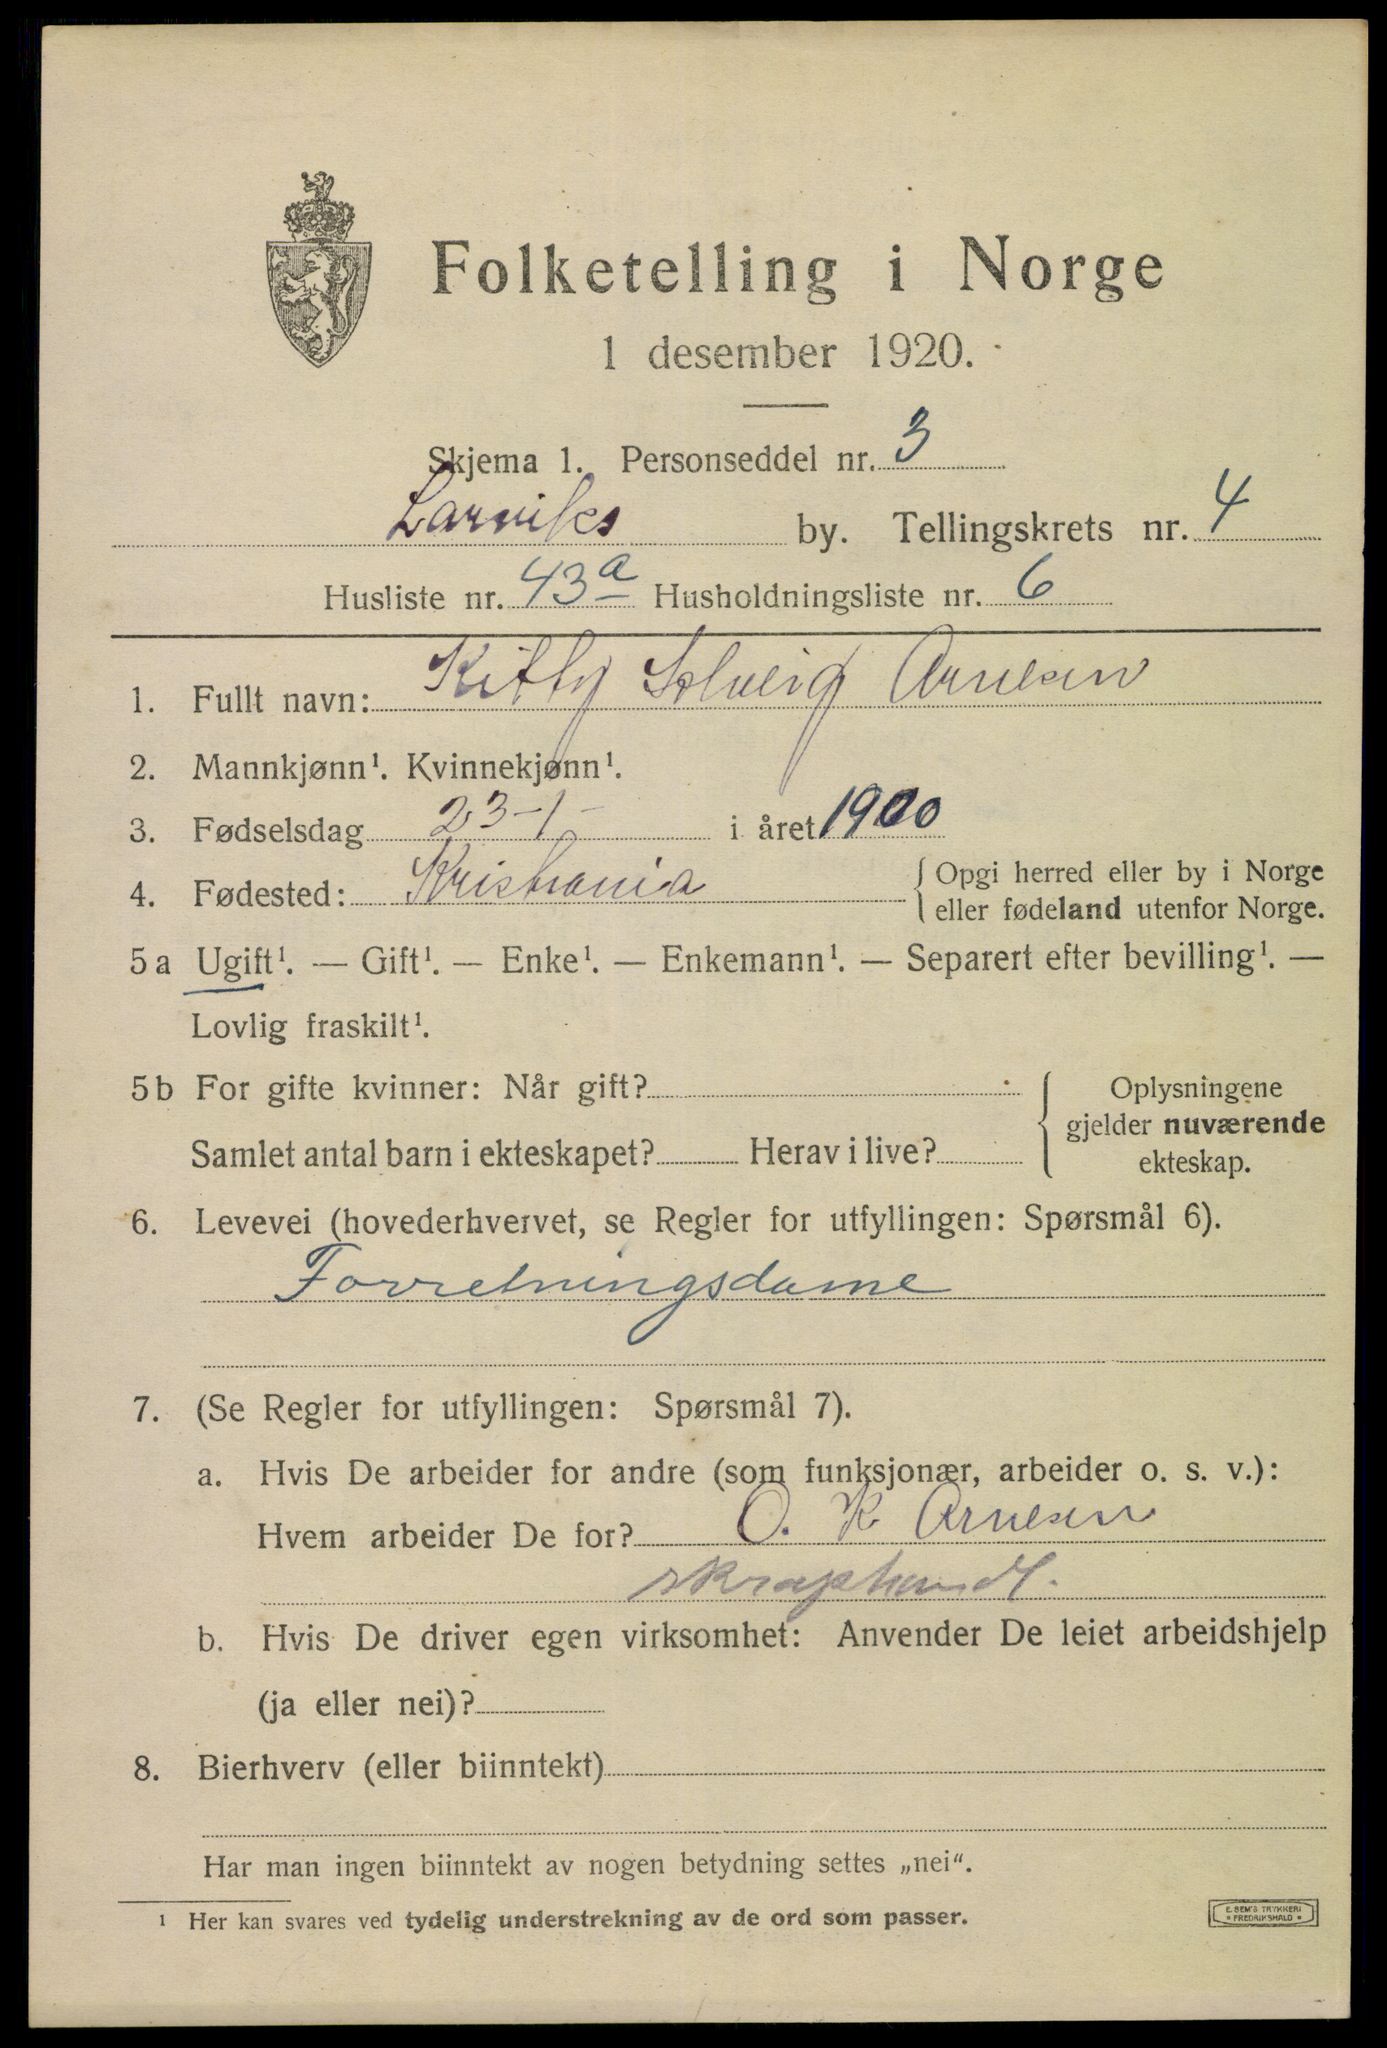 Folketelling i Norge
1 desember 1920.
Skjema 1. Personseddel nr. 3
Larviks by. Tellingskrets nr. 4
Husliste nr. 43a Husholdningsliste nr. 6
1. Fullt navn: Kitty Solveig Arnesen
2. Mannkjønn¹. Kvinnekjønn¹.
3. Fødselsdag 23-1- i året 1900
4. Fødested: Kristiania { Opgi herred eller by i Norge
eller fødeland utenfor Norge.
5a Ugift¹. — Gift¹. — Enke¹. — Enkemann¹. — Separert efter bevilling¹. —
Lovlig fraskilt¹.
5b For gifte kvinner: Når gift?
Samlet antal barn i ekteskapet? Herav i live?
Oplysningene
gjelder nuværende
ekteskap.
6. Levevei (hovederhvervet, se Regler for utfyllingen: Spørsmål 6).
Forretningsdame
7. (Se Regler for utfyllingen: Spørsmål 7).
a. Hvis De arbeider for andre (som funksjonær, arbeider o. s. v.):
Hvem arbeider De for? O. K Arnesen
skraphandl.
b. Hvis De driver egen virksomhet: Anvender De leiet arbeidshjelp
(ja eller nei)?
8. Bierhverv (eller biinntekt)
Har man ingen biinntekt av nogen betydning settes „nei“.
¹ Her kan svares ved tydelig understrekning av de ord som passer.
E. SEM'S TRYKKERI
FREDRIKSHALD